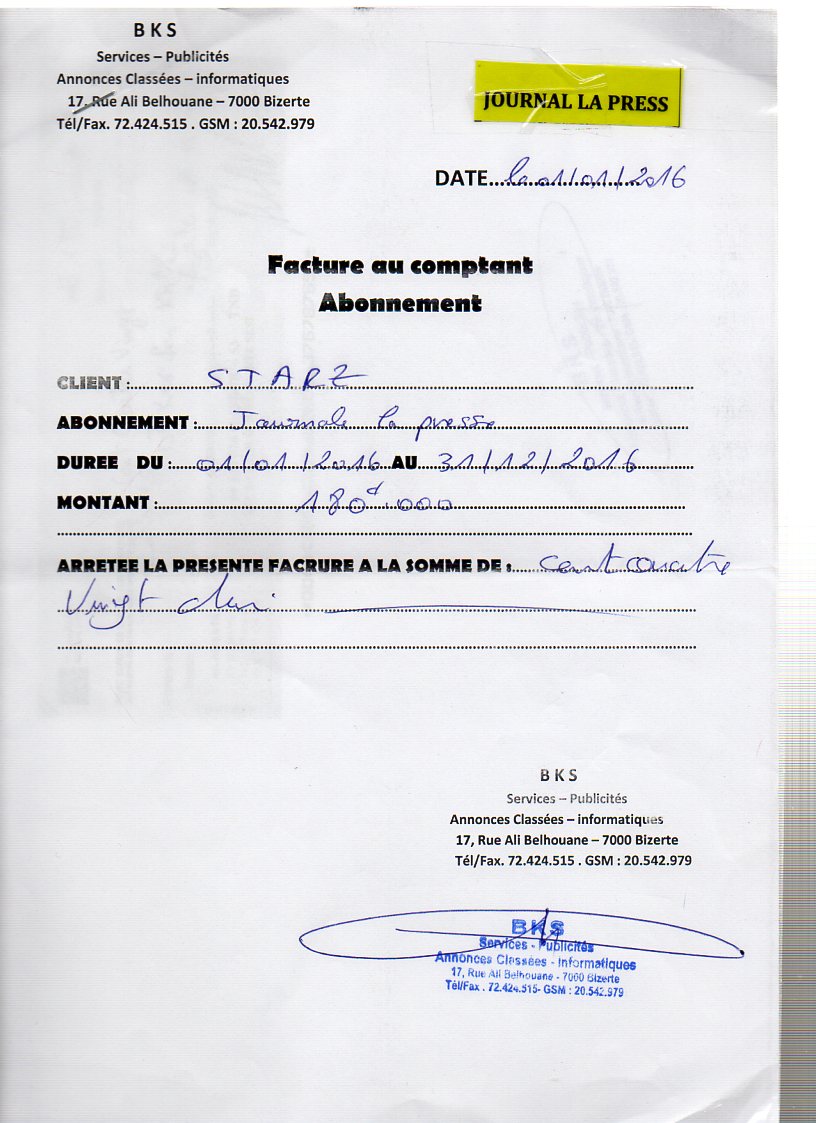 B K S
Services – Publicités
Annonces Classées – informatiques
17, Rue Ali Belhouane – 7000 Bizerte
Tél/Fax. 72.424.515 . GSM : 20.542.979
JOURNAL LA PRESS
DATE...le 01/01/2016
Facture au comptant
Abonnement
CLIENT : STARZ
ABONNEMENT : Journale la presse
DUREE DU : 01/01/2016 AU 31/12/2016
MONTANT : 180d.000
ARRETEE LA PRESENTE FACRURE A LA SOMME DE : cent quatre
Vingt
B K S
Services – Publicités
Annonces Classées – informatiques
17, Rue Ali Belhouane – 7000 Bizerte
Tél/Fax. 72.424.515 . GSM : 20.542.979
BKS
Services - Publicités
Annonces Classées - Informatiques
17, Rue Ali Belhouane - 7000 Bizerte
Tél/Fax . 72.424.515- GSM : 20.542.979